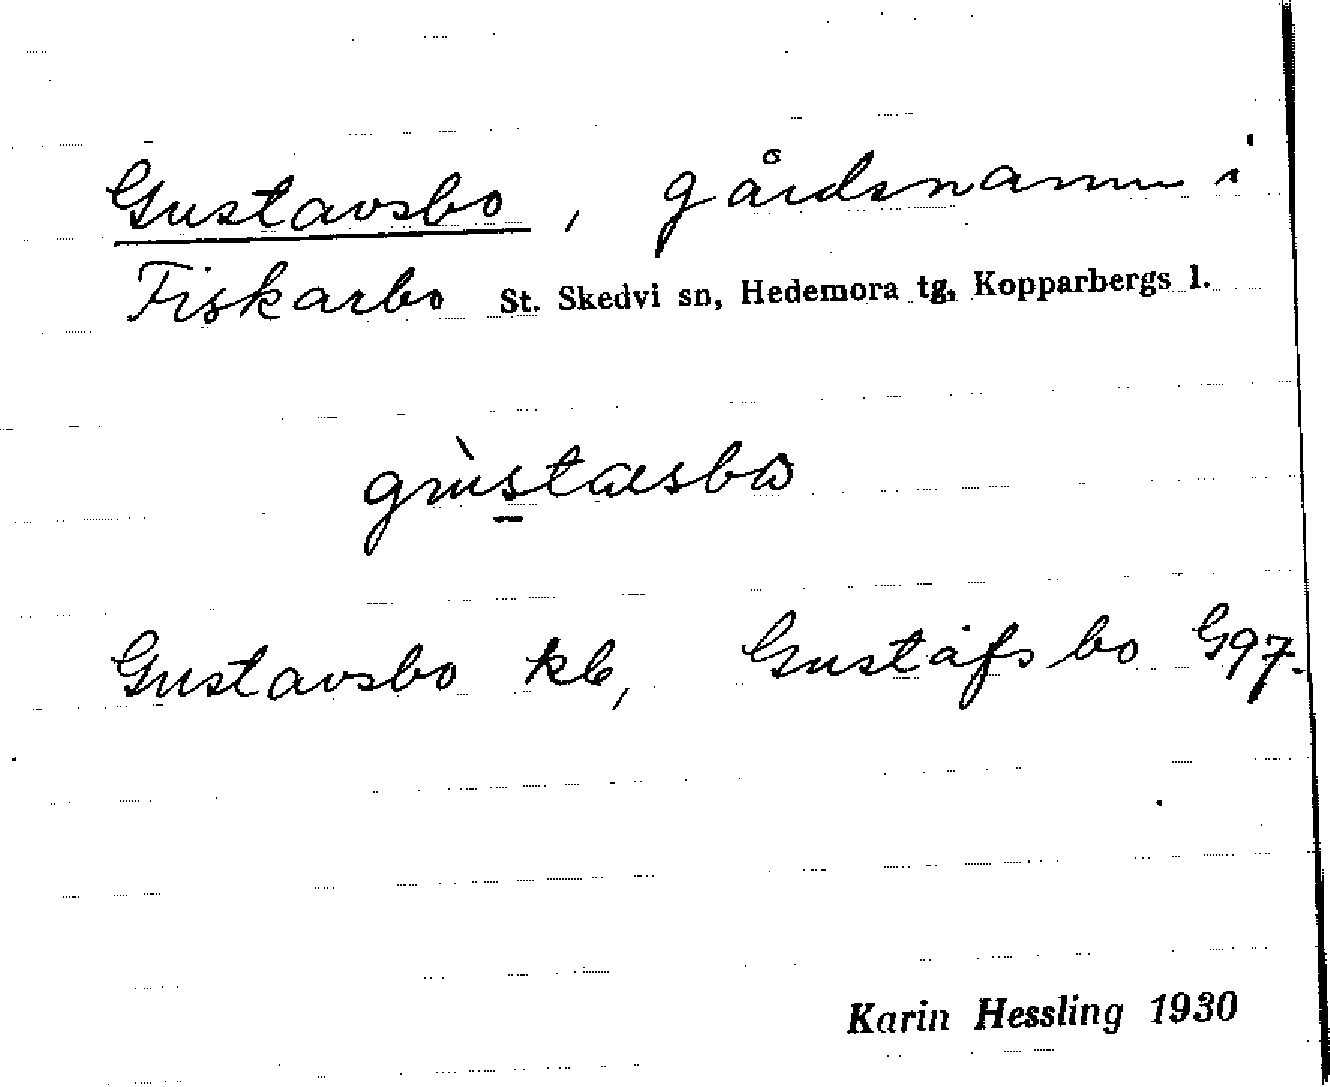 Gustavsbo, gårdsnamn i
Fiskarbo St. Skedvi sn, Hedemora tg, Kopparbergs l.
Gustavsbo kb, Gustafsbo G97.
Karin Hessling 1930